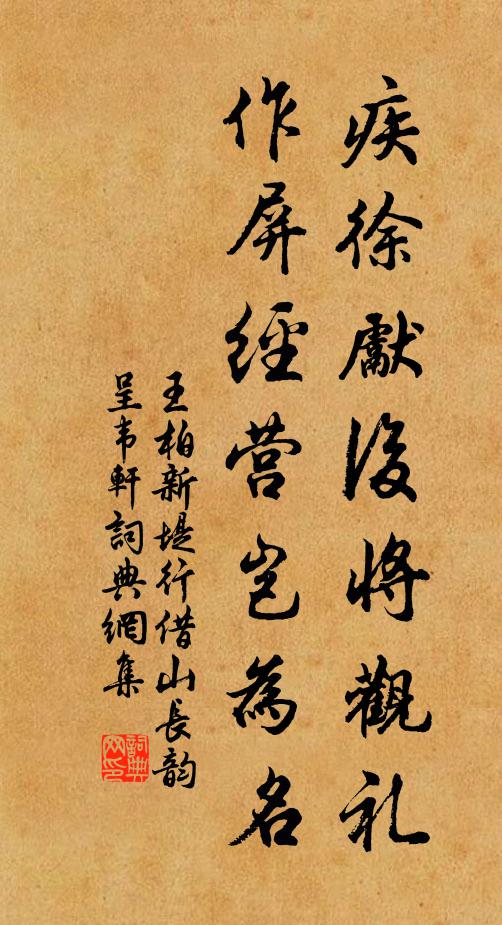 疾徐獻後將觀礼
作屏經营岂為名
王柏新堤行借山長韵
呈韦軒詞典網集
詞典网印